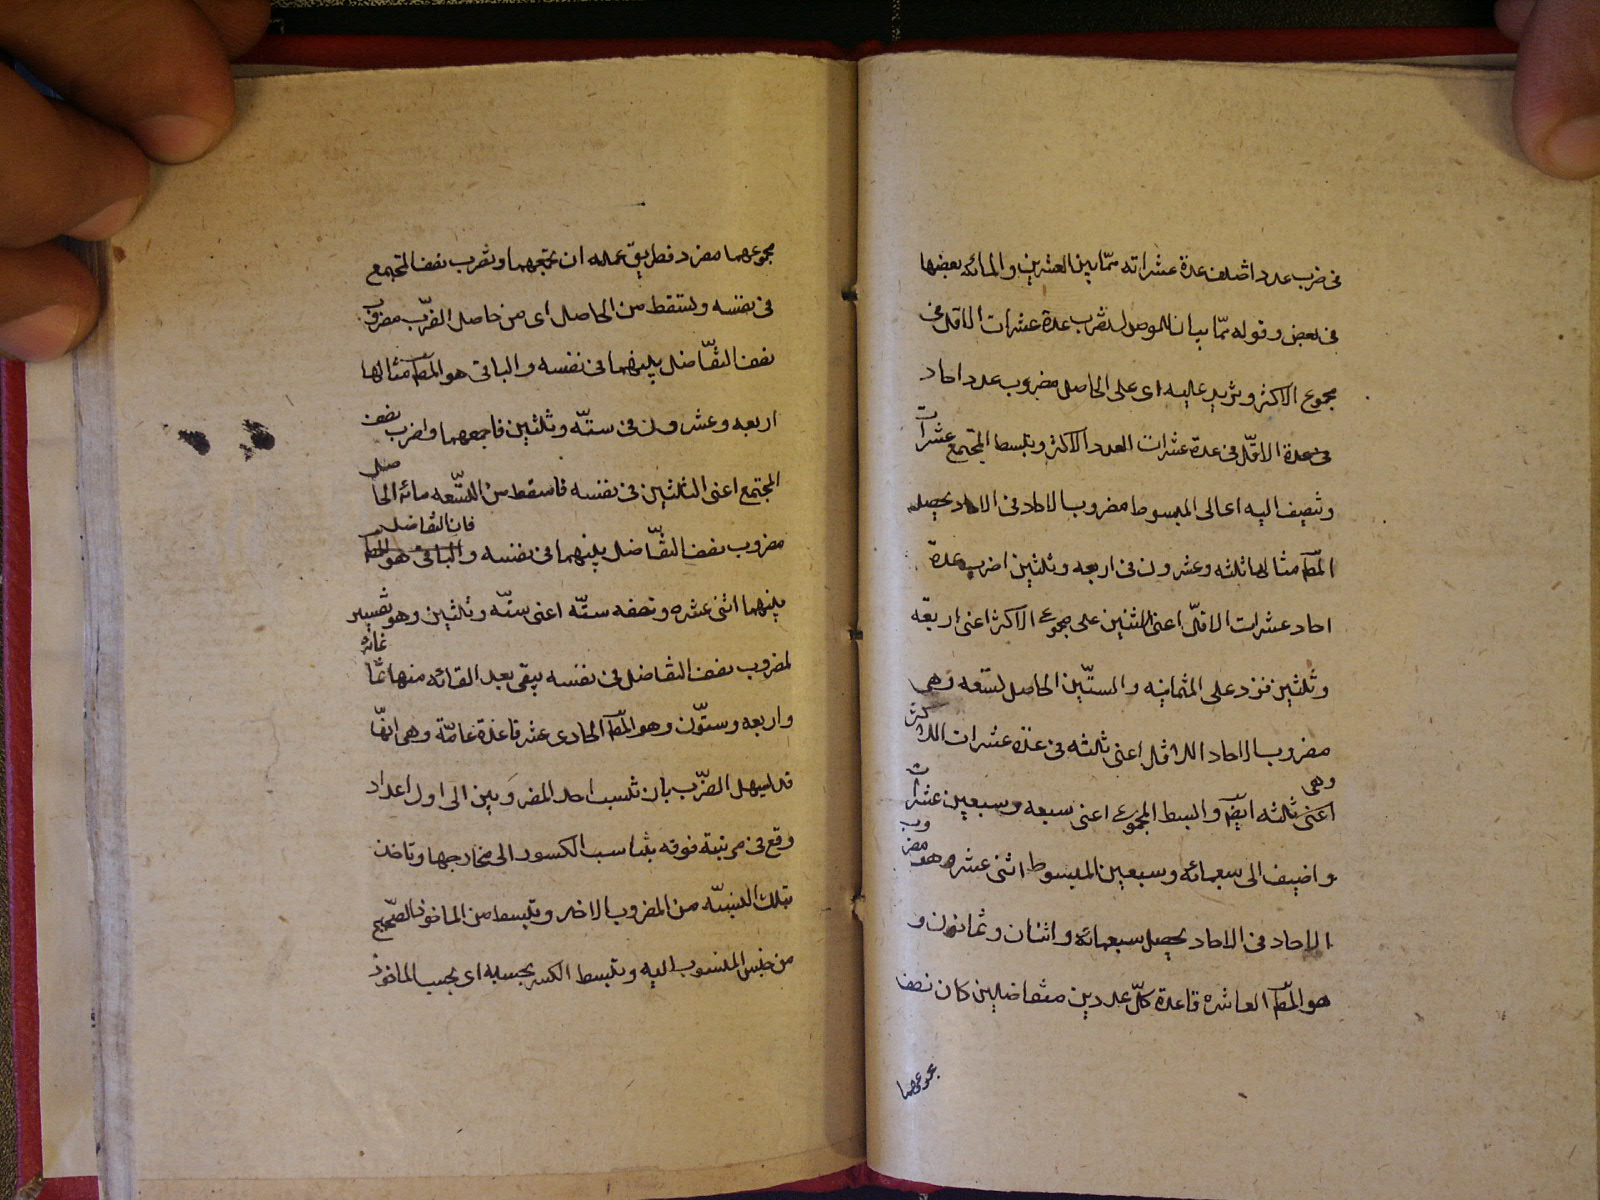 فى ضرب عدد اضلف عدة عشراته ممّا بين العشرين والمائه بعضها
فى بعض وقوله ممّا بيان للموصول تضرب عدة عشرات الاقل فى
مجموع الاكثر وتزيد عليه اى على الحاصل مضروب عدد احاد
فى عدة الاقلّ فى عدة عشرات العدد الاكثر وتبسط المجتمع عشرات
وتضيف اليه اعالى المبسوط مضروب الاحاد فى الاحاد يحصل
المط مثالها ثلثه وعشرون فى اربعه وثلثين اضرب عدة
احاد عشرات الاقلّ اعنى اثنين على مجموع الاكثر اعنى اربعه
وثلثين فزد على الثمانيه والستّين الحاصل تسعه وهى
مضروب الاحاد الاقل اعنى ثلثه فى عدّه عشرات الاكثر
وهى
اعنى ثلثه ايضً وابسط المجموع اعنى سبعه وسبعين عشرات
واضيف الى سبعمائه وسبعين المبسوط اثنى عشر وهو مضروب
الاحاد فى الاحاد يحصل سبعمائه واثنان وثمانون و
هو المط العاشره قاعدة كلّ عددين متفاضلين كان نصف
مجموعهما
مجموعهما مفرد فطريق عمله ان تجمعهما وتضرب نصف المجتمع
فى نفسه وتسقط من الحاصل اى من حاصل الضّرب مضروب
نصف التفّاضل بينهما فى نفسه والباقى هو المط مثالها
اربعه وعشرون فى ستّه وثلثين فاجمعهما واضرب نصف
المجتمع اعنى الثلثين فى نفسه فاسقط من التّسعه مائه الحاصل
فان التفاضل
مضروب نصف التفّاضل بينهما فى نفسه والباقى هو المط
بينهما اثنى عشره ونصفه ستّه اعنى ستّه وثلثين وهو تفسير
لمضروب نصف التفاضل فى نفسه يبقى بعد القائه منها ثمانمائه
واربعه وستّون وهو المط الحادى عشر قاعدة عامّة وهى انهّا
قد ليسهل الضّرب بان تنسب احد المضروبين الى اول اعداد
وقع فى مرتبة فوقه بتناسب الكسور الى مخارجها وتاخذ
بتلك النسبّه من المضروب الاخر وتبسط من الماخوذ الصّحيح
من جنس المنسوب اليه وتبسط الكسر بحسبه اى بحسب الماخوذ